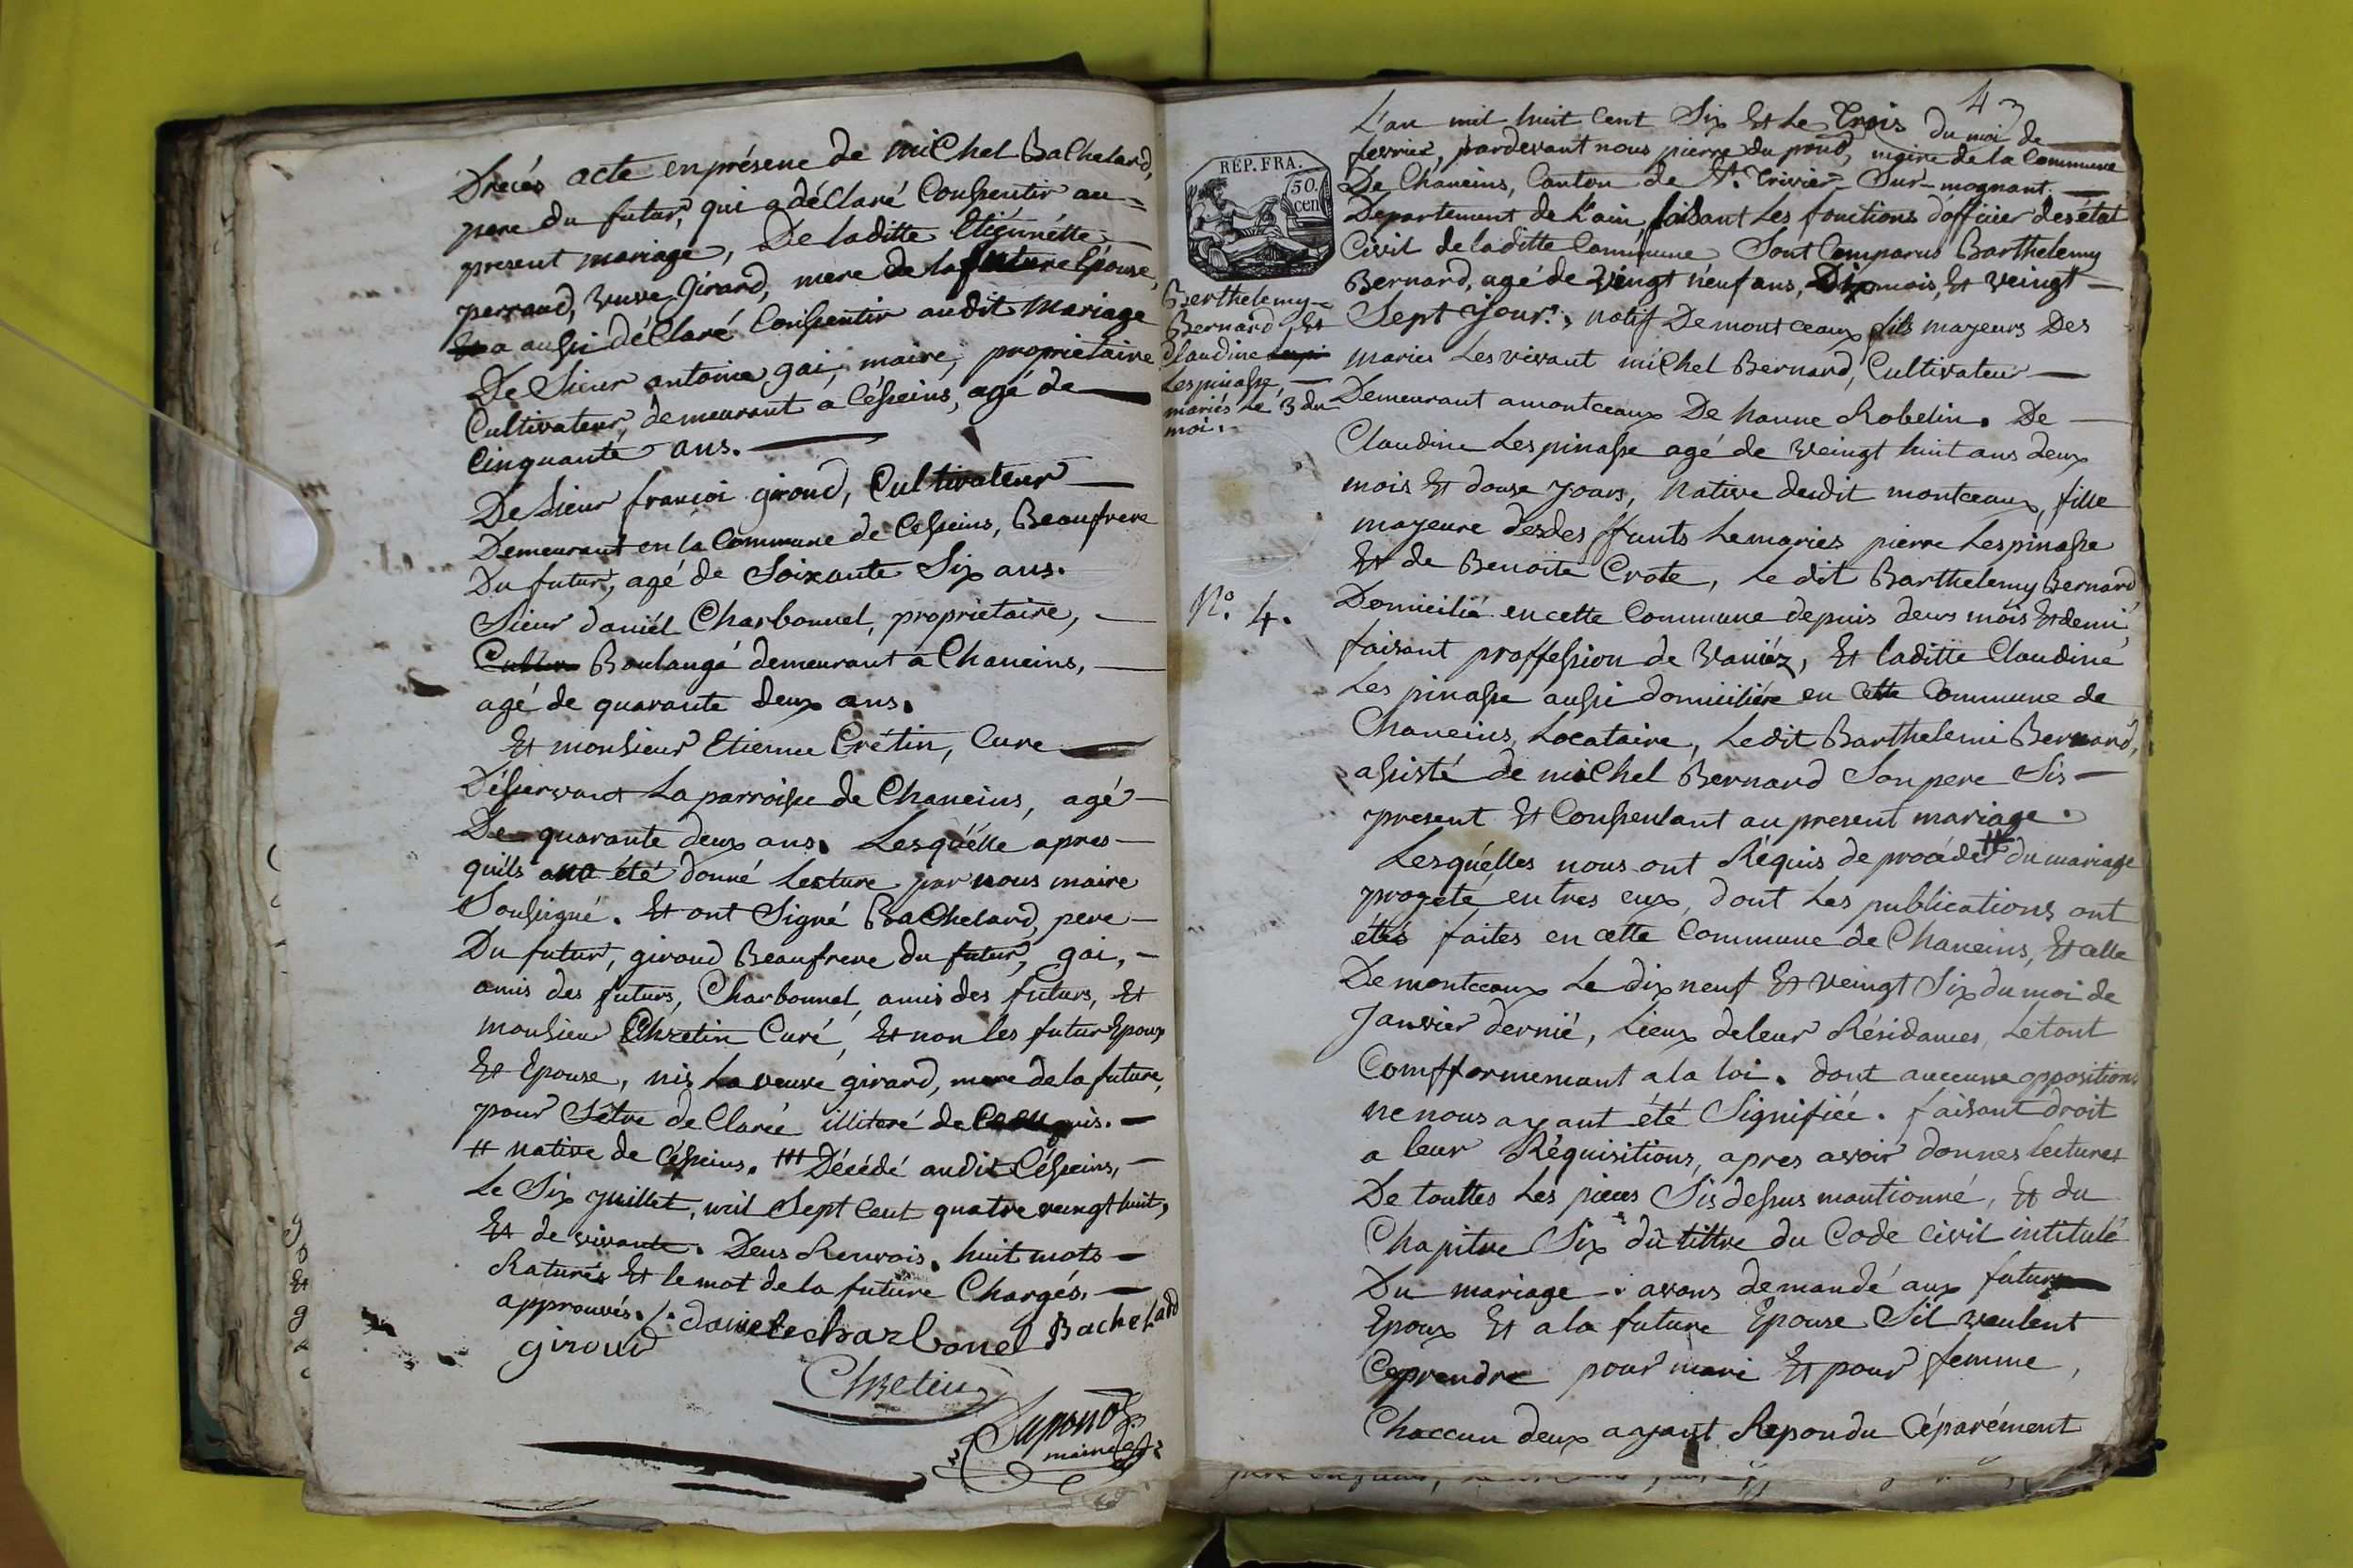 Drecés acte en présene de michel Bachelard,
pere du futur, qui a déClaré Consentir au =
present mariage, De laditte Etiénnétte
perraud, veuve Girard, mere de la future Epouse,
a aussi déClaré Consentir audit Mariage
De Sieur antoine gai, maire, propriétaire
Cultivateur, demeurant a Césseins, agé de
Cinquante ans.
De Sieur françoi giroud, Cultivateur
Demeurant en la Commune de Cesseins, Beaufrere
Du futur, agé de Soixante Six ans.
Sieur daniél Charbonnel, proprietaire,
Boulangé demeurant a Chaneins,
agé de quarante deux ans.
Et monsieur Etienne Crétin, Cure
Désservant La parroisse de Chaneins, agé
De quarante deux ans. Lesquélle apres
quils été donné Lecture par nous maire
Soussigné. Et ont Signé BaChelard, pere
Du futur, giroud Beaufrere du futur, gai,
amis des futurs, Charbonnel amis des futurs, Et
monsieur Chretin Curé, Et non les futur Epoux
Et Epouse, nis La veuve girard, mere de la future,
pour Sétre de Clarée illiteré de Ce
# native de Césseins. ### Décédé audit Césseins,
Le Six juillet, mil Sept Cent quatre veingt huit,
Et de vivante. Deus Renvois. huit mots
Raturés Et le mot de la future Chargés.
approuvés. daniele charbonel Bachelard
giroud
Chretin
Duponod
maire
43
REP. FRA.
50.
cen
Berthelemy
Bernard, Et
Claudine
Lespinasse,
mariés Le 3 du
moi.
N.o 4.
L'an mil huit Cent Six Et Le Trois du moi de
fevrier, pardevant nous pierre du , maire de la Commune
De Chaneins, Canton de St. Trivier Sur mognant.
Departement de L'ain, faisant Les fonctions d'officier des état
Civil de laditte Commune Sont Comparus Barthelemy
Bernard, agé de Veingt néuf ans, Dix mois, Et veingt
Sept jours, natif De montceaux fils mayeurs Des
maries Les vivant miChel Bernard, Cultivateur
Demeurant a montceaux De hanne Robelin. De
Claudine Lespinasse agé de Veingt huit ans deux
mois Et douse jours, Native dudit montceaux, fille
mayeure desdes ffunts Lemaries pierre Lespinasse
Et de Benoite Crote, Le dit Barthélemy Bernard
Domicilié en cette Commune depuis deux mois Et demi,
faisant proffession de Vaniéz, Et laditte Claudine
Les pinasse aussi domiciliére en Cette Commune de
Chaneins, Locataire, Ledit Barthelemi Bernard,
assisté de miChel Bernard Son pere Sis
present Et Consentant au present mariage.
Lesquélles nous ont Réquis de procéder # du mariage
progété entres eux, dont Les publications ont
étés faites en cette Commune de Chaneins, Et celle
De montceaux Le dix neuf Et Veingt Six du moi de
Janvier dernié, Lieux de leur Résidances, Le tout
Comfformemant a la loi. dont auccune oppositions
ne nous ayant été Signifiée. faisant droit
a leur Réquisitions, apres avoir donnes Lectures
De touttes Les pieces Sis dessus mantionné, Et du
Chapitre Six du tittre du Code Civil intitulé
Du mariage. avons demandé aux futur
Epoux Et a la future Epouse Sil veulent
Ceprendre pour mari Et pour femme,
Chaccun deux ayant Repondu Céparément